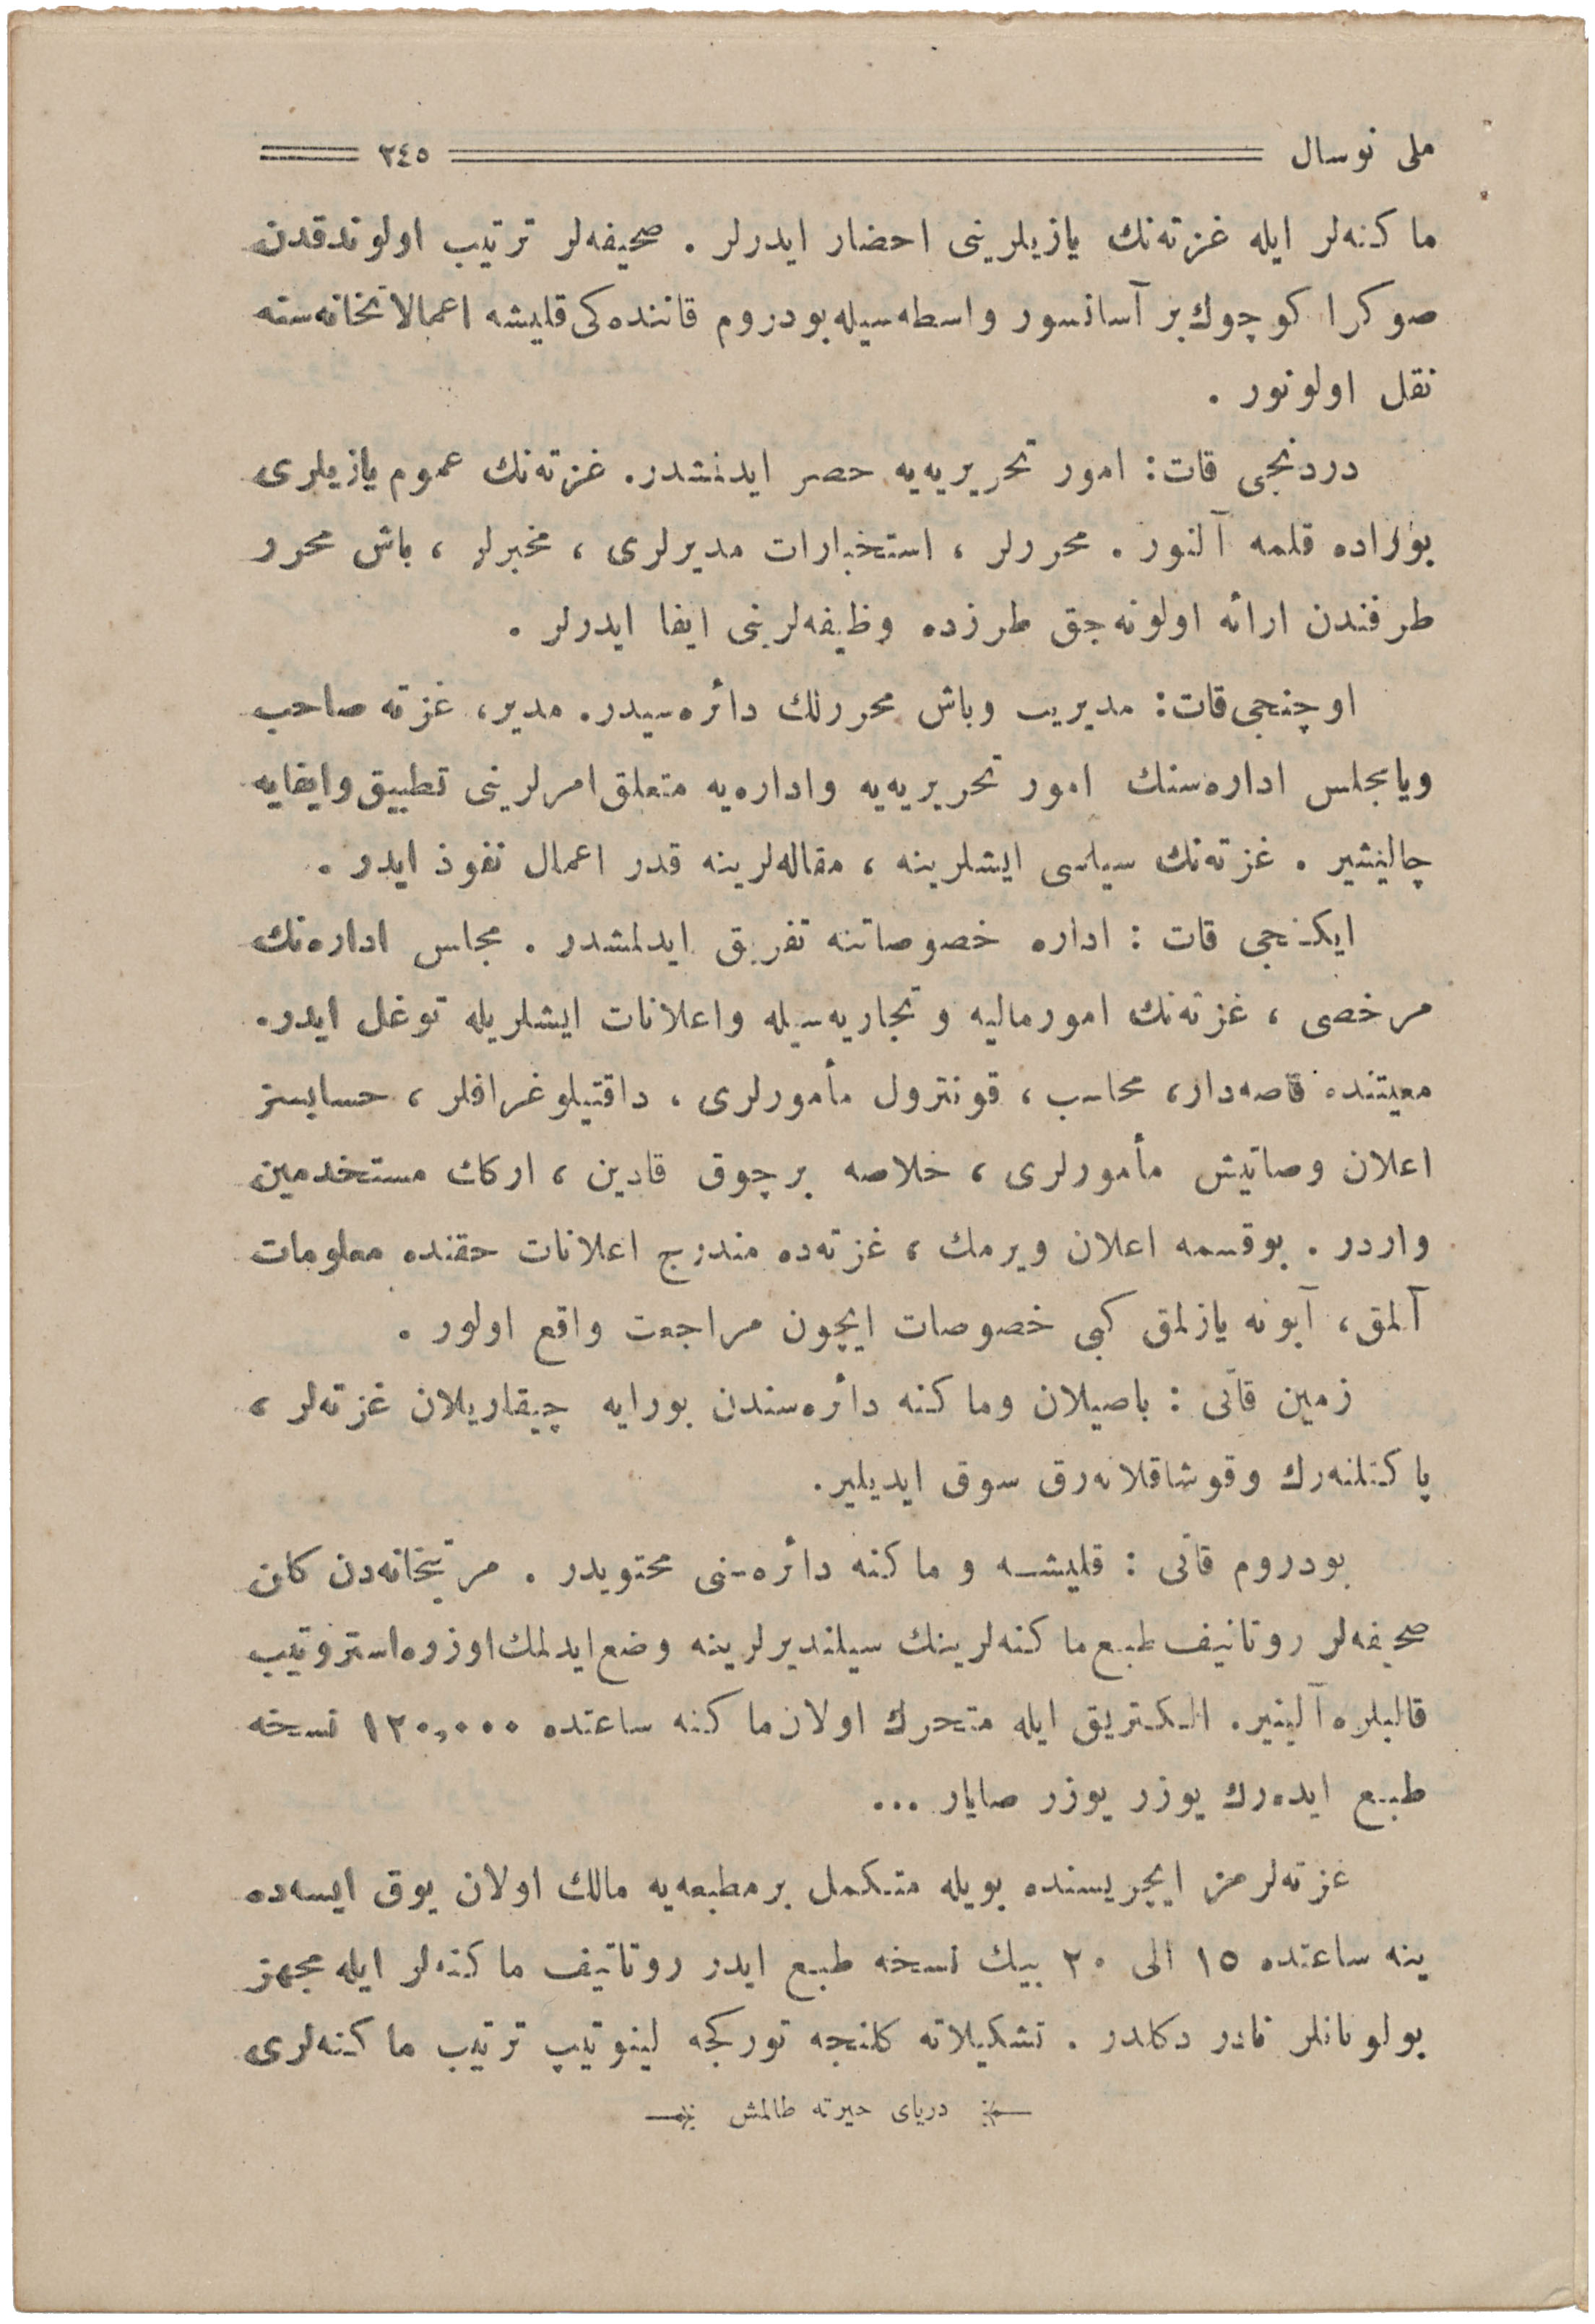 ملی نوسال ٢٤٥
ماكنه‌لر ایله غزته‌نك یازیلرینی احضار ایدرلر . صحیفه‌لر ترتیب اولوندقدن
صوكرا كوچوك بر آسانسور واسطه‌سیله بودروم قاتنده‌كی قلیشه اعمالاتخانه‌سنه
نقل اولونور .
دردنجی قات : امور تحریریه‌یه حصر ایدلمشدر . غزته‌نك عموم یازیلری
بوراده قلمه آلنور . محررلر ، استخبارات مدیرلری ، مخبرلر ، باش محرر
طرفندن ارائه اولونه‌جق طرزده وظیفه‌لرینی ایفا ایدرلر .
اوچنجی قات : مدیریت وباش محررلك دائره‌سیدر . مدیر ، غزته صاحب
ویامجلس اداره‌سنك امور تحریریه‌یه واداره‌یه متعلق امرلرینی تطبیق وایفایه
چالیشیر . غزته‌نك سیاسی ایشلرینه ، مقاله‌لرینه قدر اعمال نفوذ ایدر .
ایكنجی قات : اداره خصوصاتنه تفریق ایدلمشدر . مجلس اداره‌نك
مرخصی ، غزته‌نك امورمالیه و تجاریه‌سیله واعلانات ایشلریله توغل ایدر .
معیتنده قاصه‌دار ، محاسب ، قونترول مأمورلری ، داقتیلوغرافلر ، حسابسز
اعلان وصاتیش مأمورلری ، خلاصه برچوق قادین ، اركك مستخدمین
واردر . بوقسمه اعلان ویرمك ، غزته‌ده مندرج اعلانات حقنده معلومات
آلمق ، آبونه یازلمق كبی خصوصات ایچون مراجعت واقع اولور .
زمین قاتی : باصیلان وماكنه دائره‌سندن بورایه چیقاریلان غزته‌لر ،
پاكتلنه‌رك وقوشاقلانه‌رق سوق ایدیلیر .
بودروم قاتی : قلیشه و ماكنه دائره‌سنی محتویدر . مرتبخانه‌دن كلن
صحیفه‌لر روتاتیف طبع ماكنه‌لرینك سیلندیرلرینه وضع ایدلمك اوزره استروتیپ
قالبلره آلینیر . الكتریق ایله متحرك اولان ماكنه ساعتده ١٢٠,٠٠٠ نسخه
طبع ایده‌رك یوزر یوزر صایار ...
غزته‌لرمز ایچریسنده بویله متكمل برمطبعه‌یه مالك اولان یوق ایسه‌ده
ینه ساعتده ١٥ الی ٢٠ بیك نسخه طبع ایدر روتاتیف ماكنه‌لر ایله مجهز
بولونانلر نادر دكلدر . تشكیلاته كلنجه توركجه لینوتیپ ترتیب ماكنه‌لری
دریای حیرته طالمش